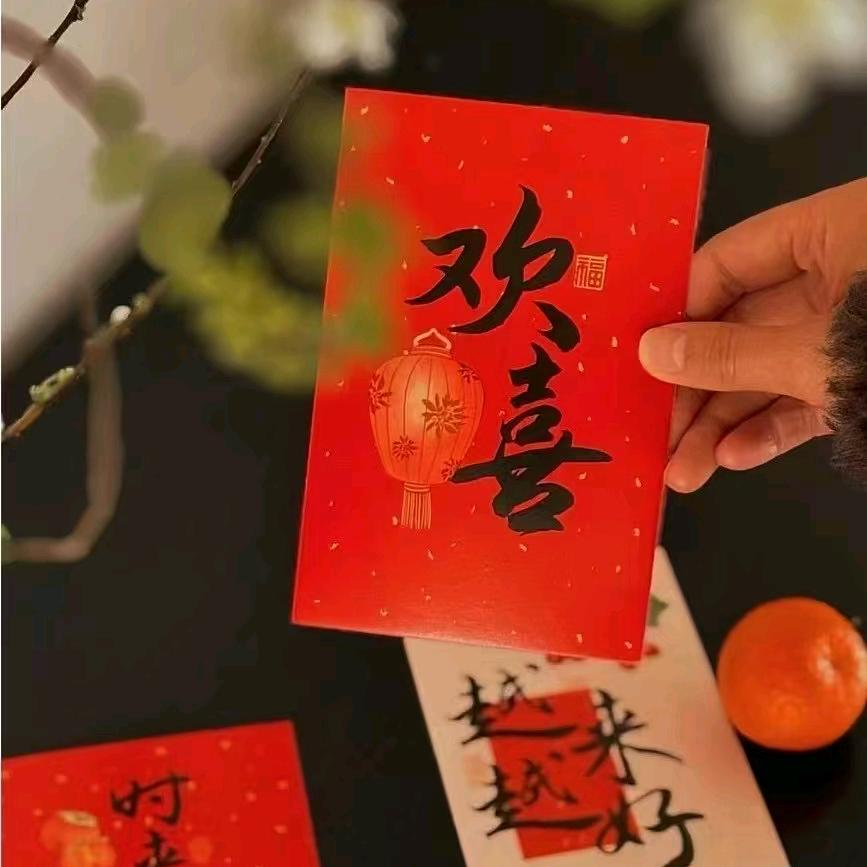 欢喜
福
越来
越好
时来